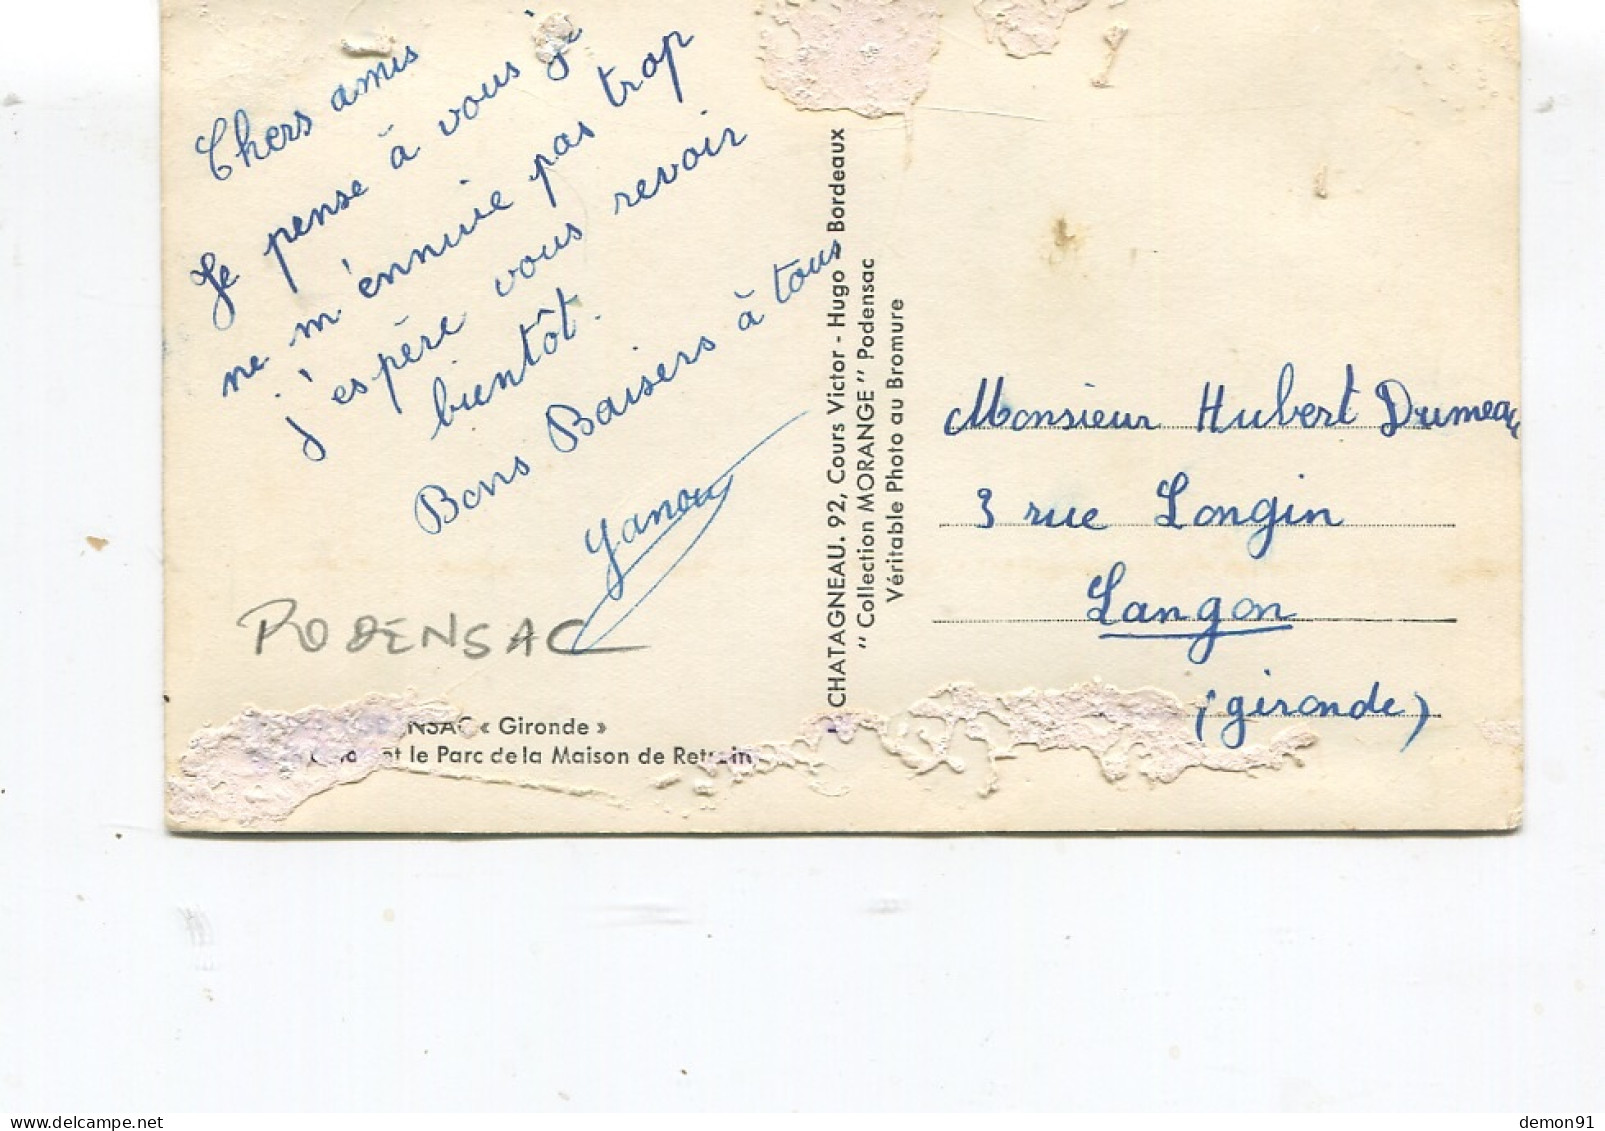 Chers amis
Je pense à vous je
ne m'ennuie pas trop
j'espère vous revoir
bientôt.
Bons Baisers à tous
Yanou
PODENSAC
NSAC « Gironde »
et le Parc de la Maison de Retraite
CHATAGNEAU. 92, Cours Victor - Hugo Bordeaux
" Collection MORANGE " Podensac
Véritable Photo au Bromure
Monsieur Hubert Dumeau
3 rue Longin
Langon
(gironde)
demon91